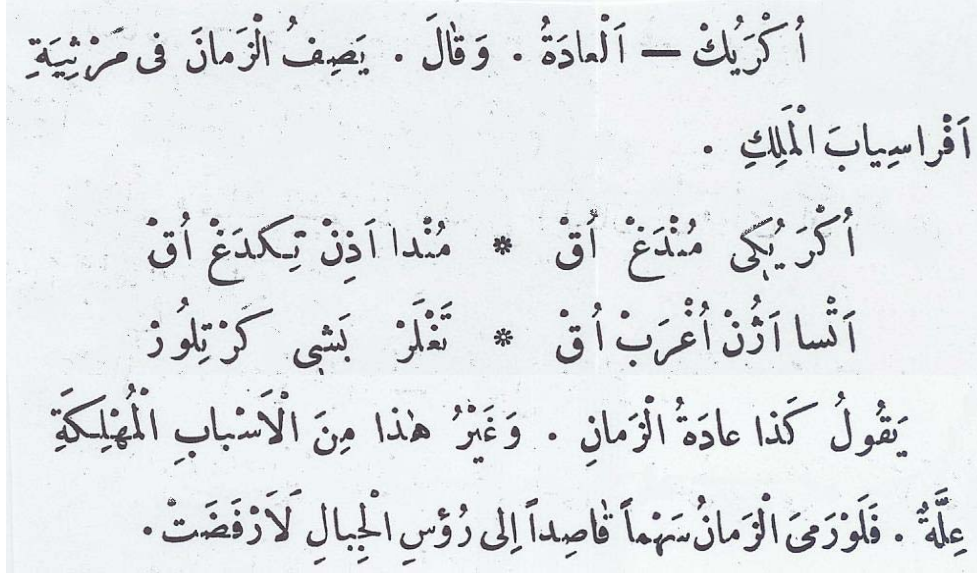 اُكْرَيُكْ — اَلْعادَةُ . وَقالَ . يَصِفُ الْزَمانَ فى مَرْثِيَةِ
اَفْراسِيابَ الْمَلِكِ .
اُكْرَيُكى مُنْدَغْ اُقْ * مُنْدا اَذِنْ تِكدَغْ اُقْ
اَتْسا اَژُنْ اُغْرَبْ اُقْ * تَغْلَرْ بَشى كَرْتِلُورْ
يَقُولُ كَذا عادَةُ الْزَمانِ . وَغَيْرُ هٰذا مِنَ الْاَسْبابِ الْمُهْلِكَةِ
عِلَّةٌ . فَلَوْ رَمىَ الْزَمانُ سَهْماً قاصِداً اِلى رُؤُسِ الْجِبالِ لَارْفَضَتْ .